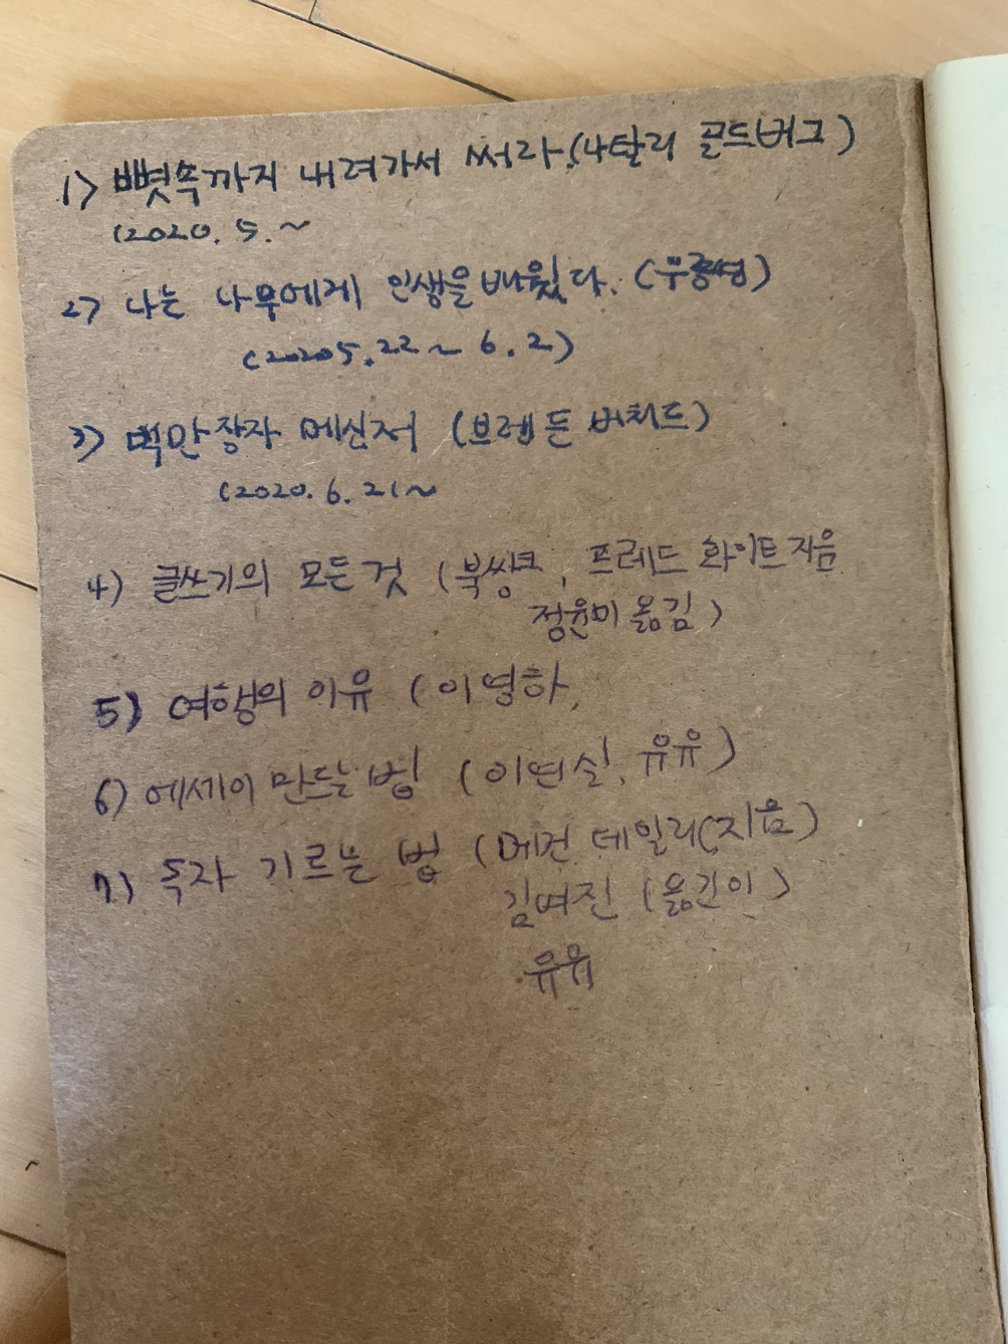 1) 뼛속까지 내려가서 써라.(나탈리 골드버그)
(2020. 5. ~
2) 나는 나무에게 인생을 배웠다. (우종영)
(2020 5. 22 ~ 6. 2)
3) 백만장자 메신저 (브렌든 버처드)
(2020. 6. 21 ~
4) 글쓰기의 모든 것 (북씽크, 프레드 화이트 지음
정윤미 옮김)
5) 여행의 이유 (이영하,
6) 에세이 만드는 법 (이연실, 유유)
7) 독자 기르는 법 (메건 데일리(지음)
김여진 (옮긴이)
유유